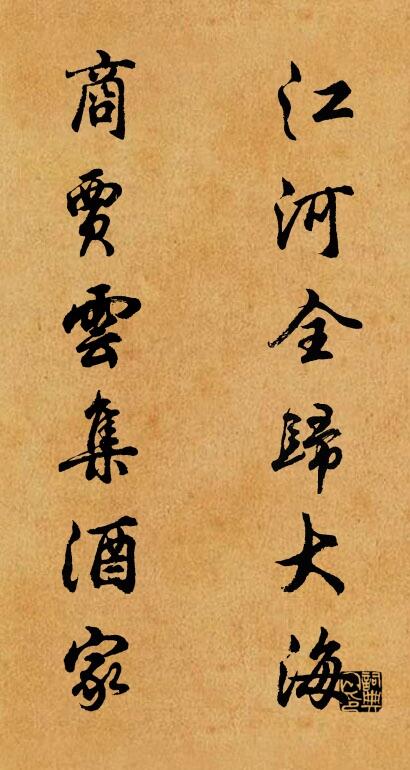 江河全歸大海
商賈雲集酒家
詞典